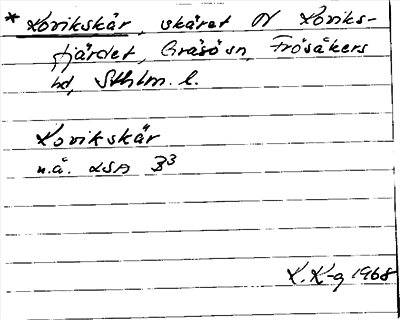 * Lovikskär, skäret N Loviks-
fjärdet, Gräsö sn, Frösåkers
hd, Sthlm. l.
Lovikskär
n.å. LSA B3
K.K-g 1968